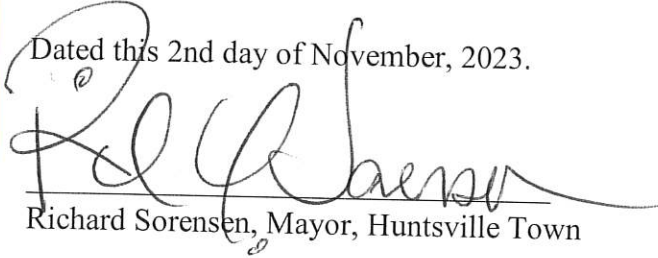 Dated this 2nd day of November, 2023.
Richard Sorensen, Mayor, Huntsville Town